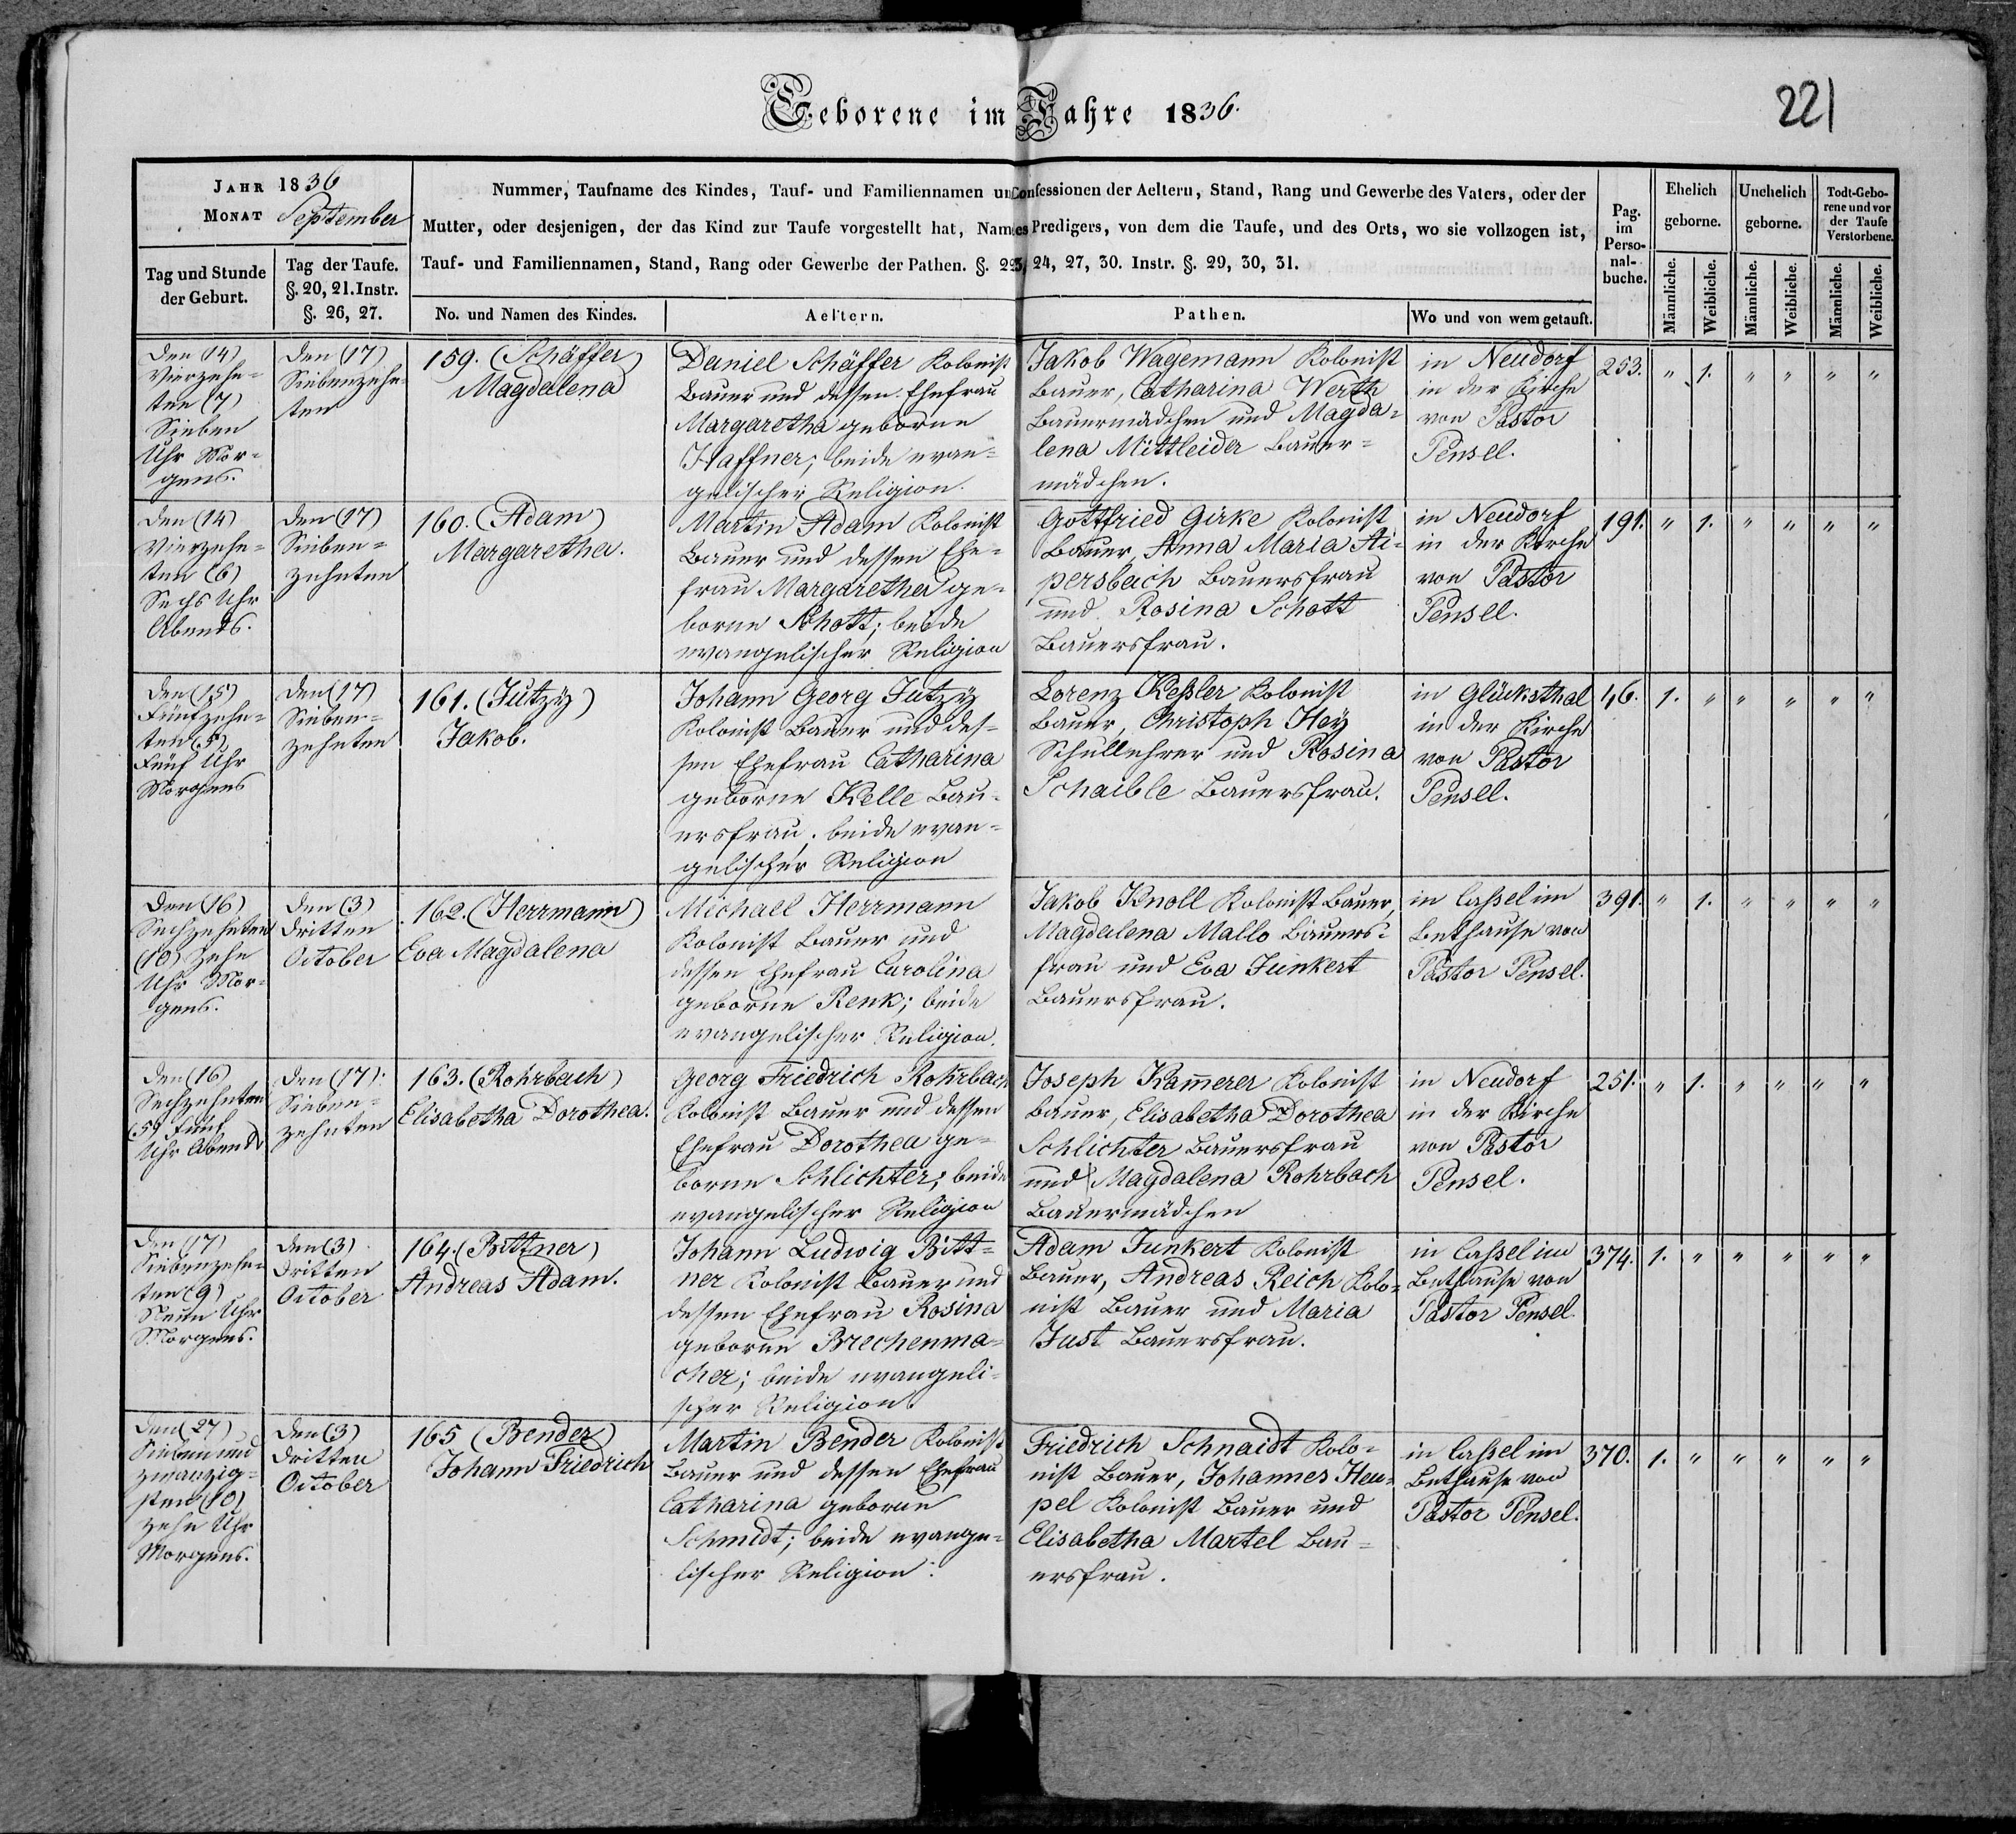 Geborene im Jahre 1836.
221
JAHR 1836
MONAT September
Nummer, Taufname des Kindes, Tauf- und Familiennamen und Confessionen der Aeltern, Stand, Rang und Gewerbe des Vaters, oder der
Mutter, oder desjenigen, der das Kind zur Taufe vorgestellt hat, Names Predigers, von dem die Taufe, und des Orts, wo sie vollzogen ist,
Tauf- und Familiennamen, Stand, Rang oder Gewerbe der Pathen. §. 23, 24, 27, 30. Instr. §. 29, 30, 31.
Tag und Stunde
der Geburt.
Tag der Taufe.
§. 20, 21. Instr.
§. 26, 27.
No. und Namen des Kindes.
Aeltern.
Pathen.
Wo und von wem getauft.
Pag.
im
Perso-
nal-
buche.
Ehelich
geborne.
Unehelich
geborne.
Todt-Gebo-
rene und vor
der Taufe
Verstorbene.
Männliche.
Weibliche.
Männliche.
Weibliche.
Männliche.
Weibliche.
Den (14)
Vierzehn-
ten (7)
Sieben
Uhr Mor-
gens.
Den (17)
Siebenzehn-
ten
159. (Schäffer)
Magdalena
Daniel Schäffer Kolonist
Bauer und dessen Ehefrau
Margaretha geborne
Haffner; beide evan-
gelischer Religion.
Jakob Wagemann Kolonist
Bauer, Catharina Werth
Bauermädchen und Magda-
lena Mittleider Bauer-
mädchen.
in Neudorf
in der Kirche
von Pastor
Pensel.
253. " 1. " " " "
Den (14)
Vierzehn-
ten (6)
Sechs Uhr
Abends.
Den (17)
Sieben-
zehnten
160. (Adam)
Margaretha.
Martin Adam Kolonist
Bauer und dessen Ehe-
frau Margaretha ge-
borne Schott; beide
evangelischer Religion
Gottfried Girke Kolonist
Bauer, Anna Maria Ai-
persbach Bauersfrau
und Rosina Schott
Bauersfrau.
in Neudorf
in der Kirche
von Pastor
Pensel.
191. " 1. " " " "
Den (15)
Fünfzehn-
ten (5)
Fünf Uhr
Morgens
Den (17)
Sieben-
zehnten
161. (Jutzÿ)
Jakob.
Johann Georg Jutzÿ
Kolonist Bauer und des-
sen Ehefrau Catharina
geborne Kelle Bau-
ersfrau; beide evan-
gelischer Religion
Lorenz Keßler Kolonist
Bauer, Christoph Heÿ
Schullehrer und Rosina
Schaible Bauersfrau.
in Glücksthal
in der Kirche
von Pastor
Pensel.
46. 1. " " " " "
Den (16)
Sechzehnten
(10) Zehn
Uhr Mor-
gens.
Den (3)
Dritten
October
162. (Herrmann)
Eva Magdalena
Michael Herrmann
Kolonist Bauer und
dessen Ehefrau Carolina
geborne Renk; beide
evangelischer Religion.
Jakob Knoll Kolonist Bauer,
Magdalena Mallo Bauers-
frau und Eva Junkert
Bauersfrau.
in Caßel im
Bethause von
Pastor Pensel.
391. " 1. " " " "
Den (16)
Sechzehnten
(5) Fünf
Uhr Abends
Den (17)
Sieben-
zehnten
163. (Rohrbach)
Elisabetha Dorothea.
Georg Friedrich Rohrbach
Kolonist Bauer und dessen
Ehefrau Dorothea ge-
borne Schlichter; beide
evangelischer Religion
Joseph Kam̄erer Kolonist
Bauer, Elisabetha Dorothea
Schlichter Bauersfrau
und Magdalena Rohrbach
Bauermädchen
in Neudorf
in der Kirche
von Pastor
Pensel.
251. " 1. " " " "
Den (17)
Siebenzehn-
ten (9)
Neun Uhr
Morgens.
Den (3)
Dritten
October
164. (Bittner)
Andreas Adam.
Johann Ludwig Bitt-
ner Kolonist Bauer und
dessen Ehefrau Rosina
geborne Brechenma-
cher; beide evangeli-
scher Religion
Adam Junkert Kolonist
Bauer, Andreas Reich Kolo-
nist Bauer und Maria
Just Bauersfrau.
in Caßel im
Bethause von
Pastor Pensel.
374. 1. " " " " "
Den (27)
Sieben und
zwanzig-
sten (10)
Zehn Uhr
Morgens.
Den (3)
Dritten
October
165 (Bender)
Johann Friedrich
Martin Bender Kolonist
Bauer und dessen Ehefrau
Catharina geborne
Schmidt; beide evange-
lischer Religion.
Friedrich Schnaidt Kolo-
nist Bauer, Johannes Heu-
pel Kolonist Bauer und
Elisabetha Martel Bau-
ersfrau.
in Caßel im
Bethause von
Pastor Pensel.
370. 1. " " " " "